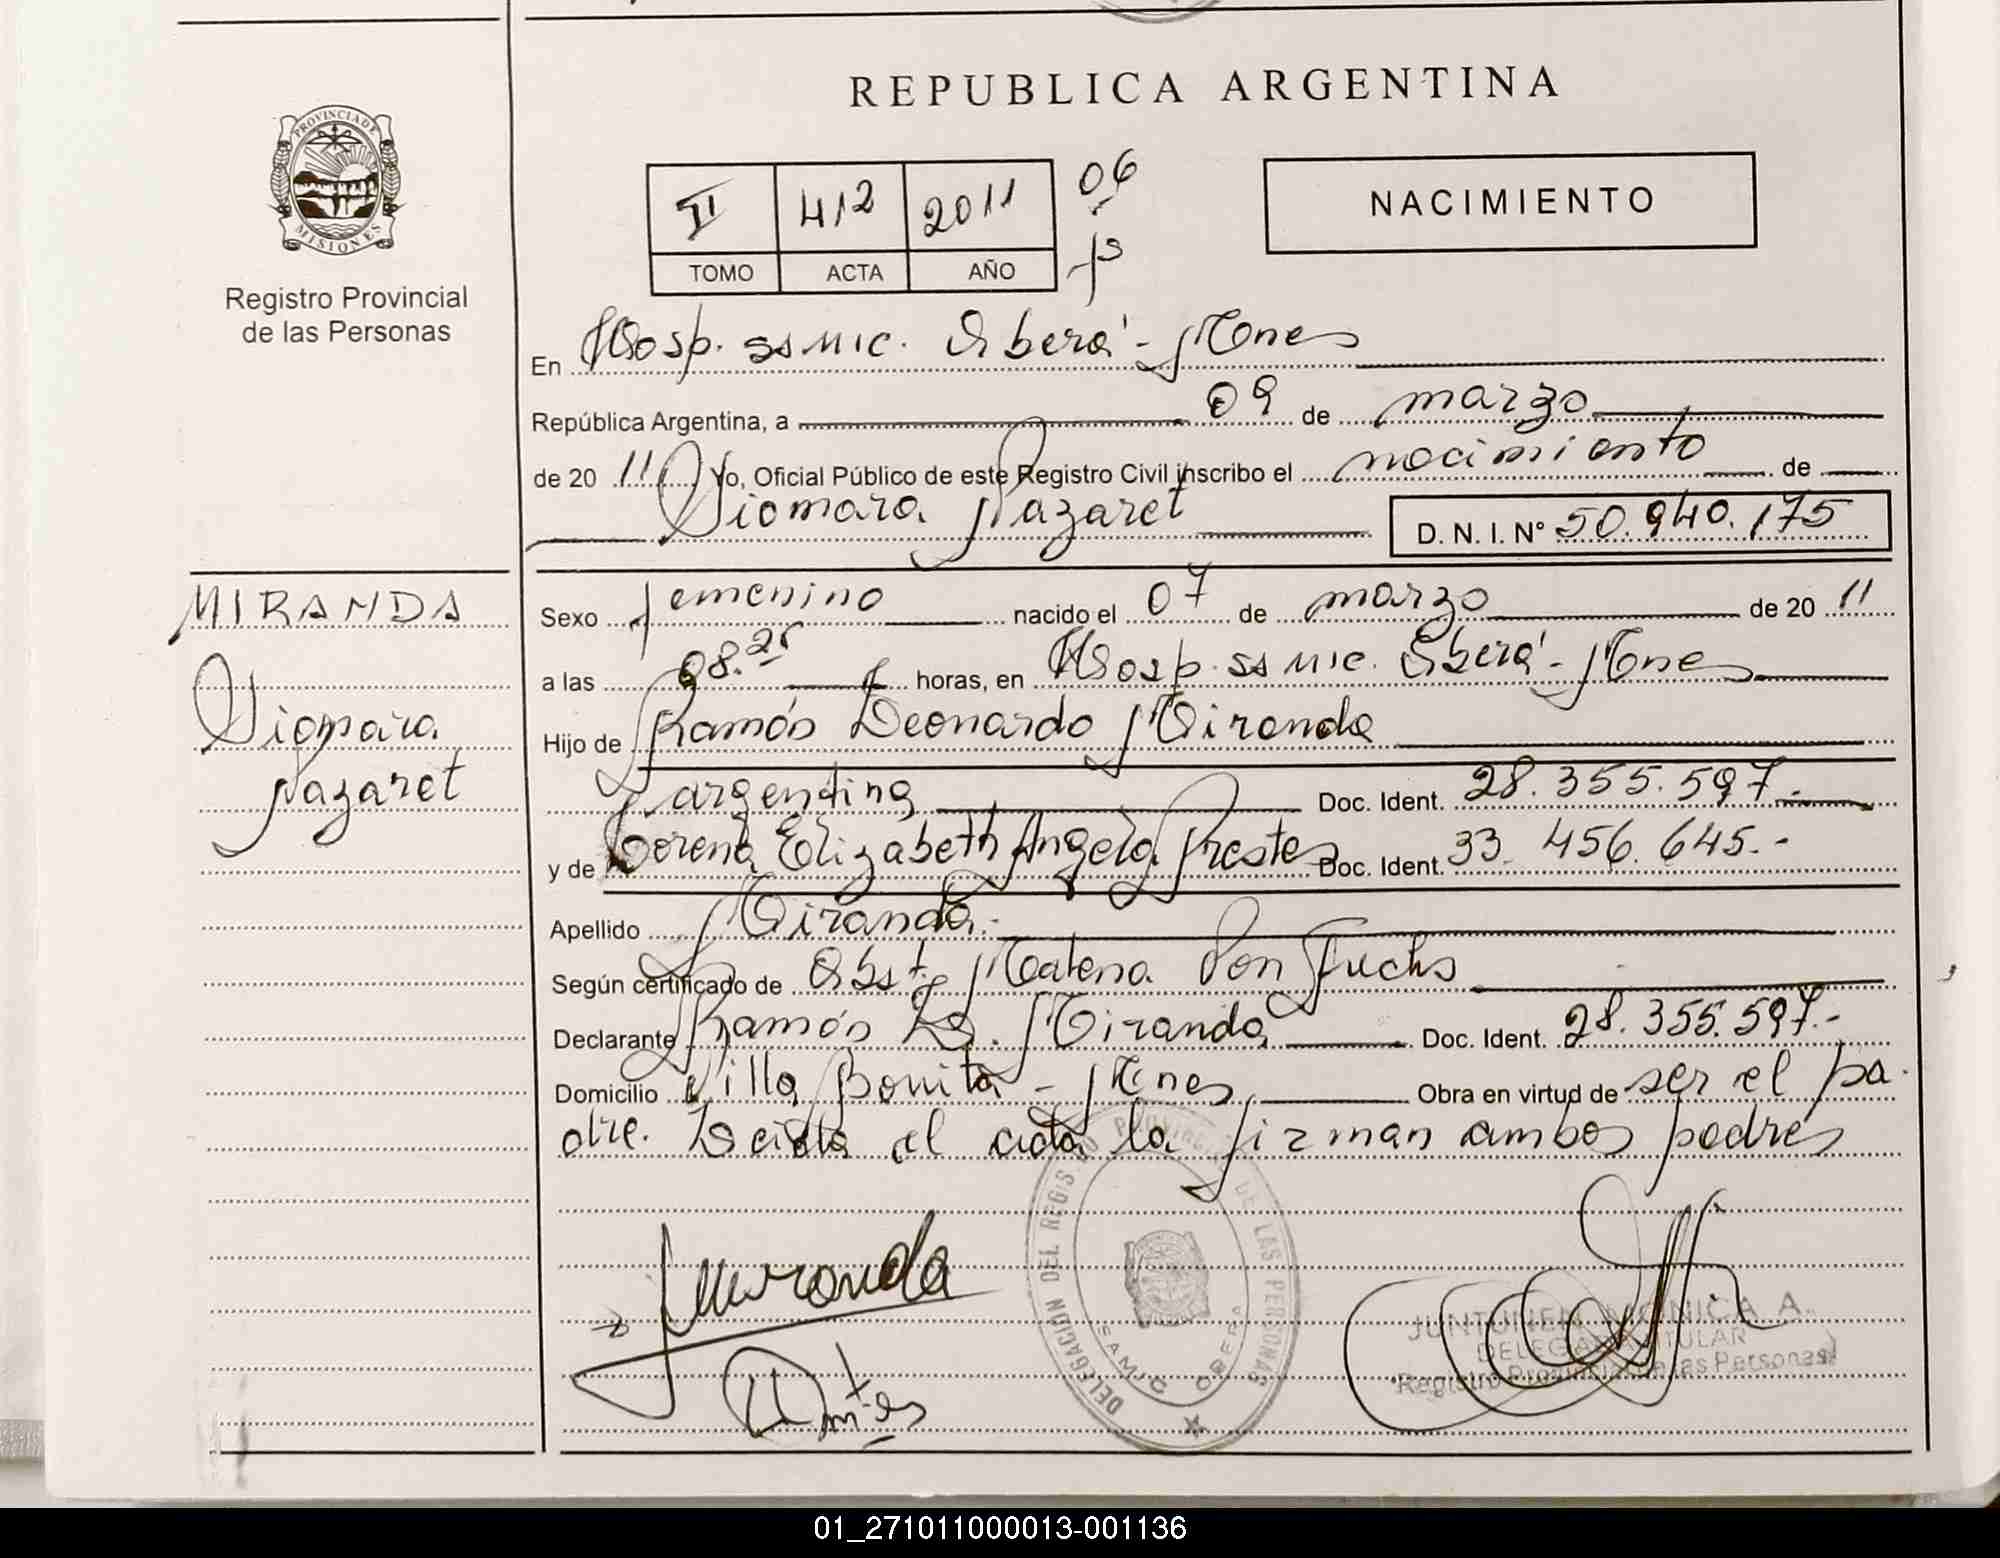 REPUBLICA ARGENTINA
PROVINCIA DE
MISIONES
Registro Provincial
de las Personas
II 412 2011 06
TOMO ACTA AÑO
NACIMIENTO
En Hosp. ss mic. Oberá - Mnes
República Argentina, a 09 de marzo
de 2011 Yo, Oficial Público de este Registro Civil inscribo el nacimiento de
Siomara Nazaret D. N. I. Nº 50.940.175
MIRANDA
Siomara
Nazaret
Sexo femenino nacido el 07 de marzo de 2011
a las 08.25 horas, en Hosp. ss mic. Oberá - Mnes
Hijo de Ramón Leonardo Miranda
argentina Doc. Ident. 28.355.597.-
y de Lorena Elizabeth Angela Prestes Doc. Ident. 33.456.645.-
Apellido Miranda.-
Según certificado de Obst. Malena Von Fuchs
Declarante Ramón L. Miranda Doc. Ident. 28.355.597.-
Domicilio Villa Bonita - Mnes Obra en virtud de ser el pa
dre. Leida el acta la firman ambos padres
Miranda
DELEGACION DEL REGISTRO PROVINCIAL DE LAS PERSONAS
OBERA
JUNTUNEN MONICA A.
DELEGADA TITULAR
Registro Provincial de las Personas
01_271011000013-001136